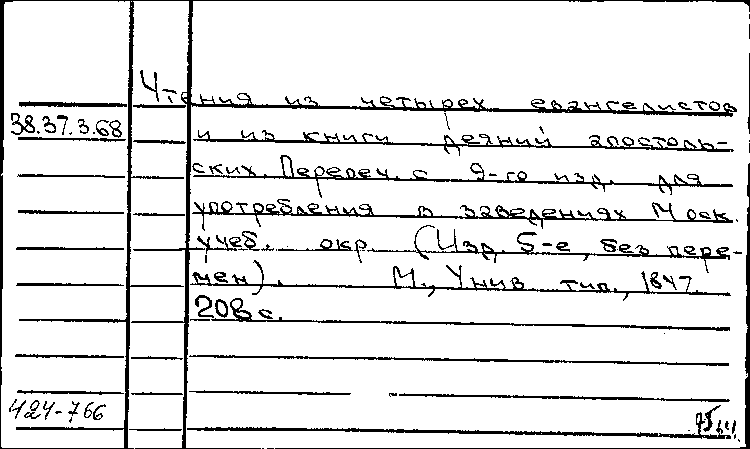 Чтения из четырех евангелистов
38.37.3.68
и из книги деяний апостоль-
ских. Перепеч. с 9-го изд. для
употребления в заведениях Моск.
учеб. окр. (Изд. 5-е, без пере-
мен). М., Унив. тип., 1847.
208 с.
424-766